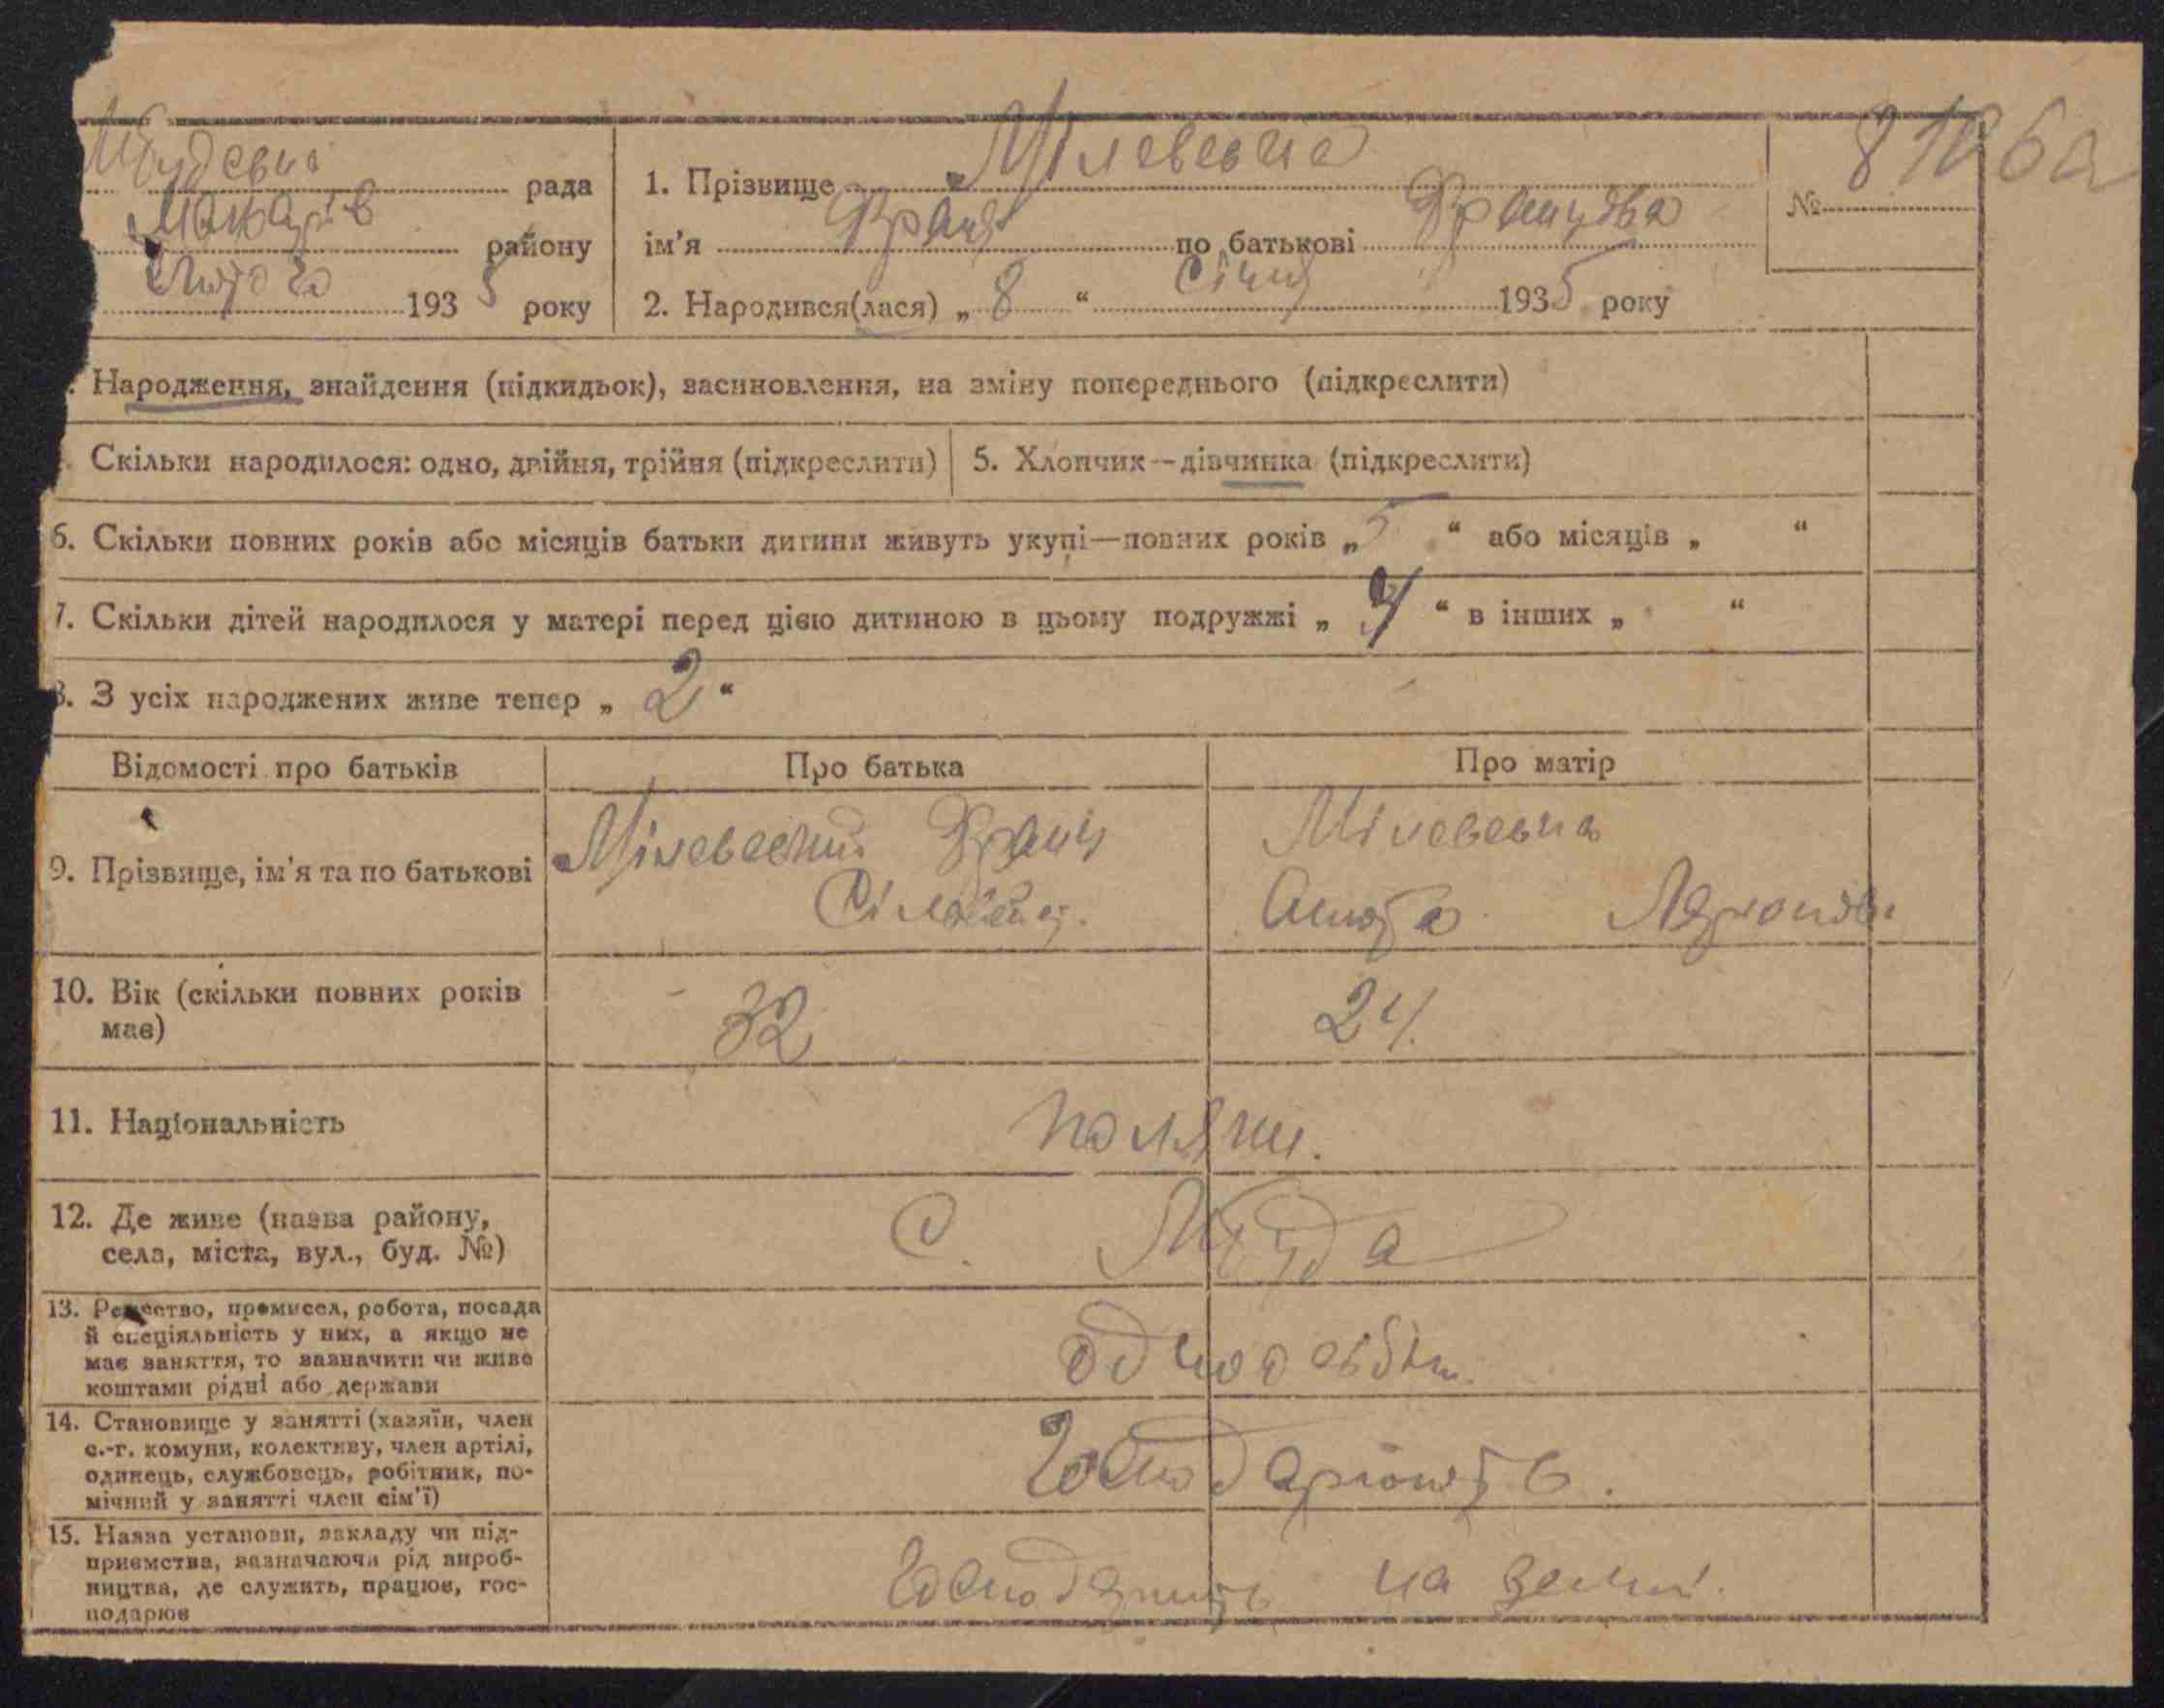 рада
1. Прізвище Мілевська
№
Макарів району
ім'я Франя по батькові Францова
Лютого 1935 року
2. Народився(лася) „ 8 “ Січня 1935 року
Народження, знайдення (підкидьок), засиновлення, на зміну попереднього (підкреслити)
Скільки народилося: одно, двійня, трійня (підкреслити)
5. Хлопчик—дівчинка (підкреслити)
6. Скільки повних років або місяців батьки дитини живуть укупі—повних років „ 5 “ або місяців „ “
7. Скільки дітей народилося у матері перед цією дитиною в цьому подружжі „ “ в інших „ “
8. З усіх народжених живе тепер „ 2 “
Відомості про батьків
Про батька
Про матір
9. Прізвище, ім'я та по батькові
Мілевский Франц
Мілевська
10. Вік (скільки повних років
має)
32
24
11. Національність
поляки.
12. Де живе (назва району,
села, міста, вул., буд. №)
с.
13. Ремество, промисел, робота, посада
й спеціяльність у них, а якщо не
має заняття, то зазначити чи живе
коштами рідні або держави
одноосібн.
14. Становище у занятті (хазяїн, член
с.-г. комуни, колективу, член артілі,
одинець, службовець, робітник, по-
мічний у занятті член сім'ї)
Господарюють.
15. Назва установи, закладу чи під-
приємства, зазначаючи рід вироб-
ництва, де служить, працює, гос-
подарює
Господарють на землі.